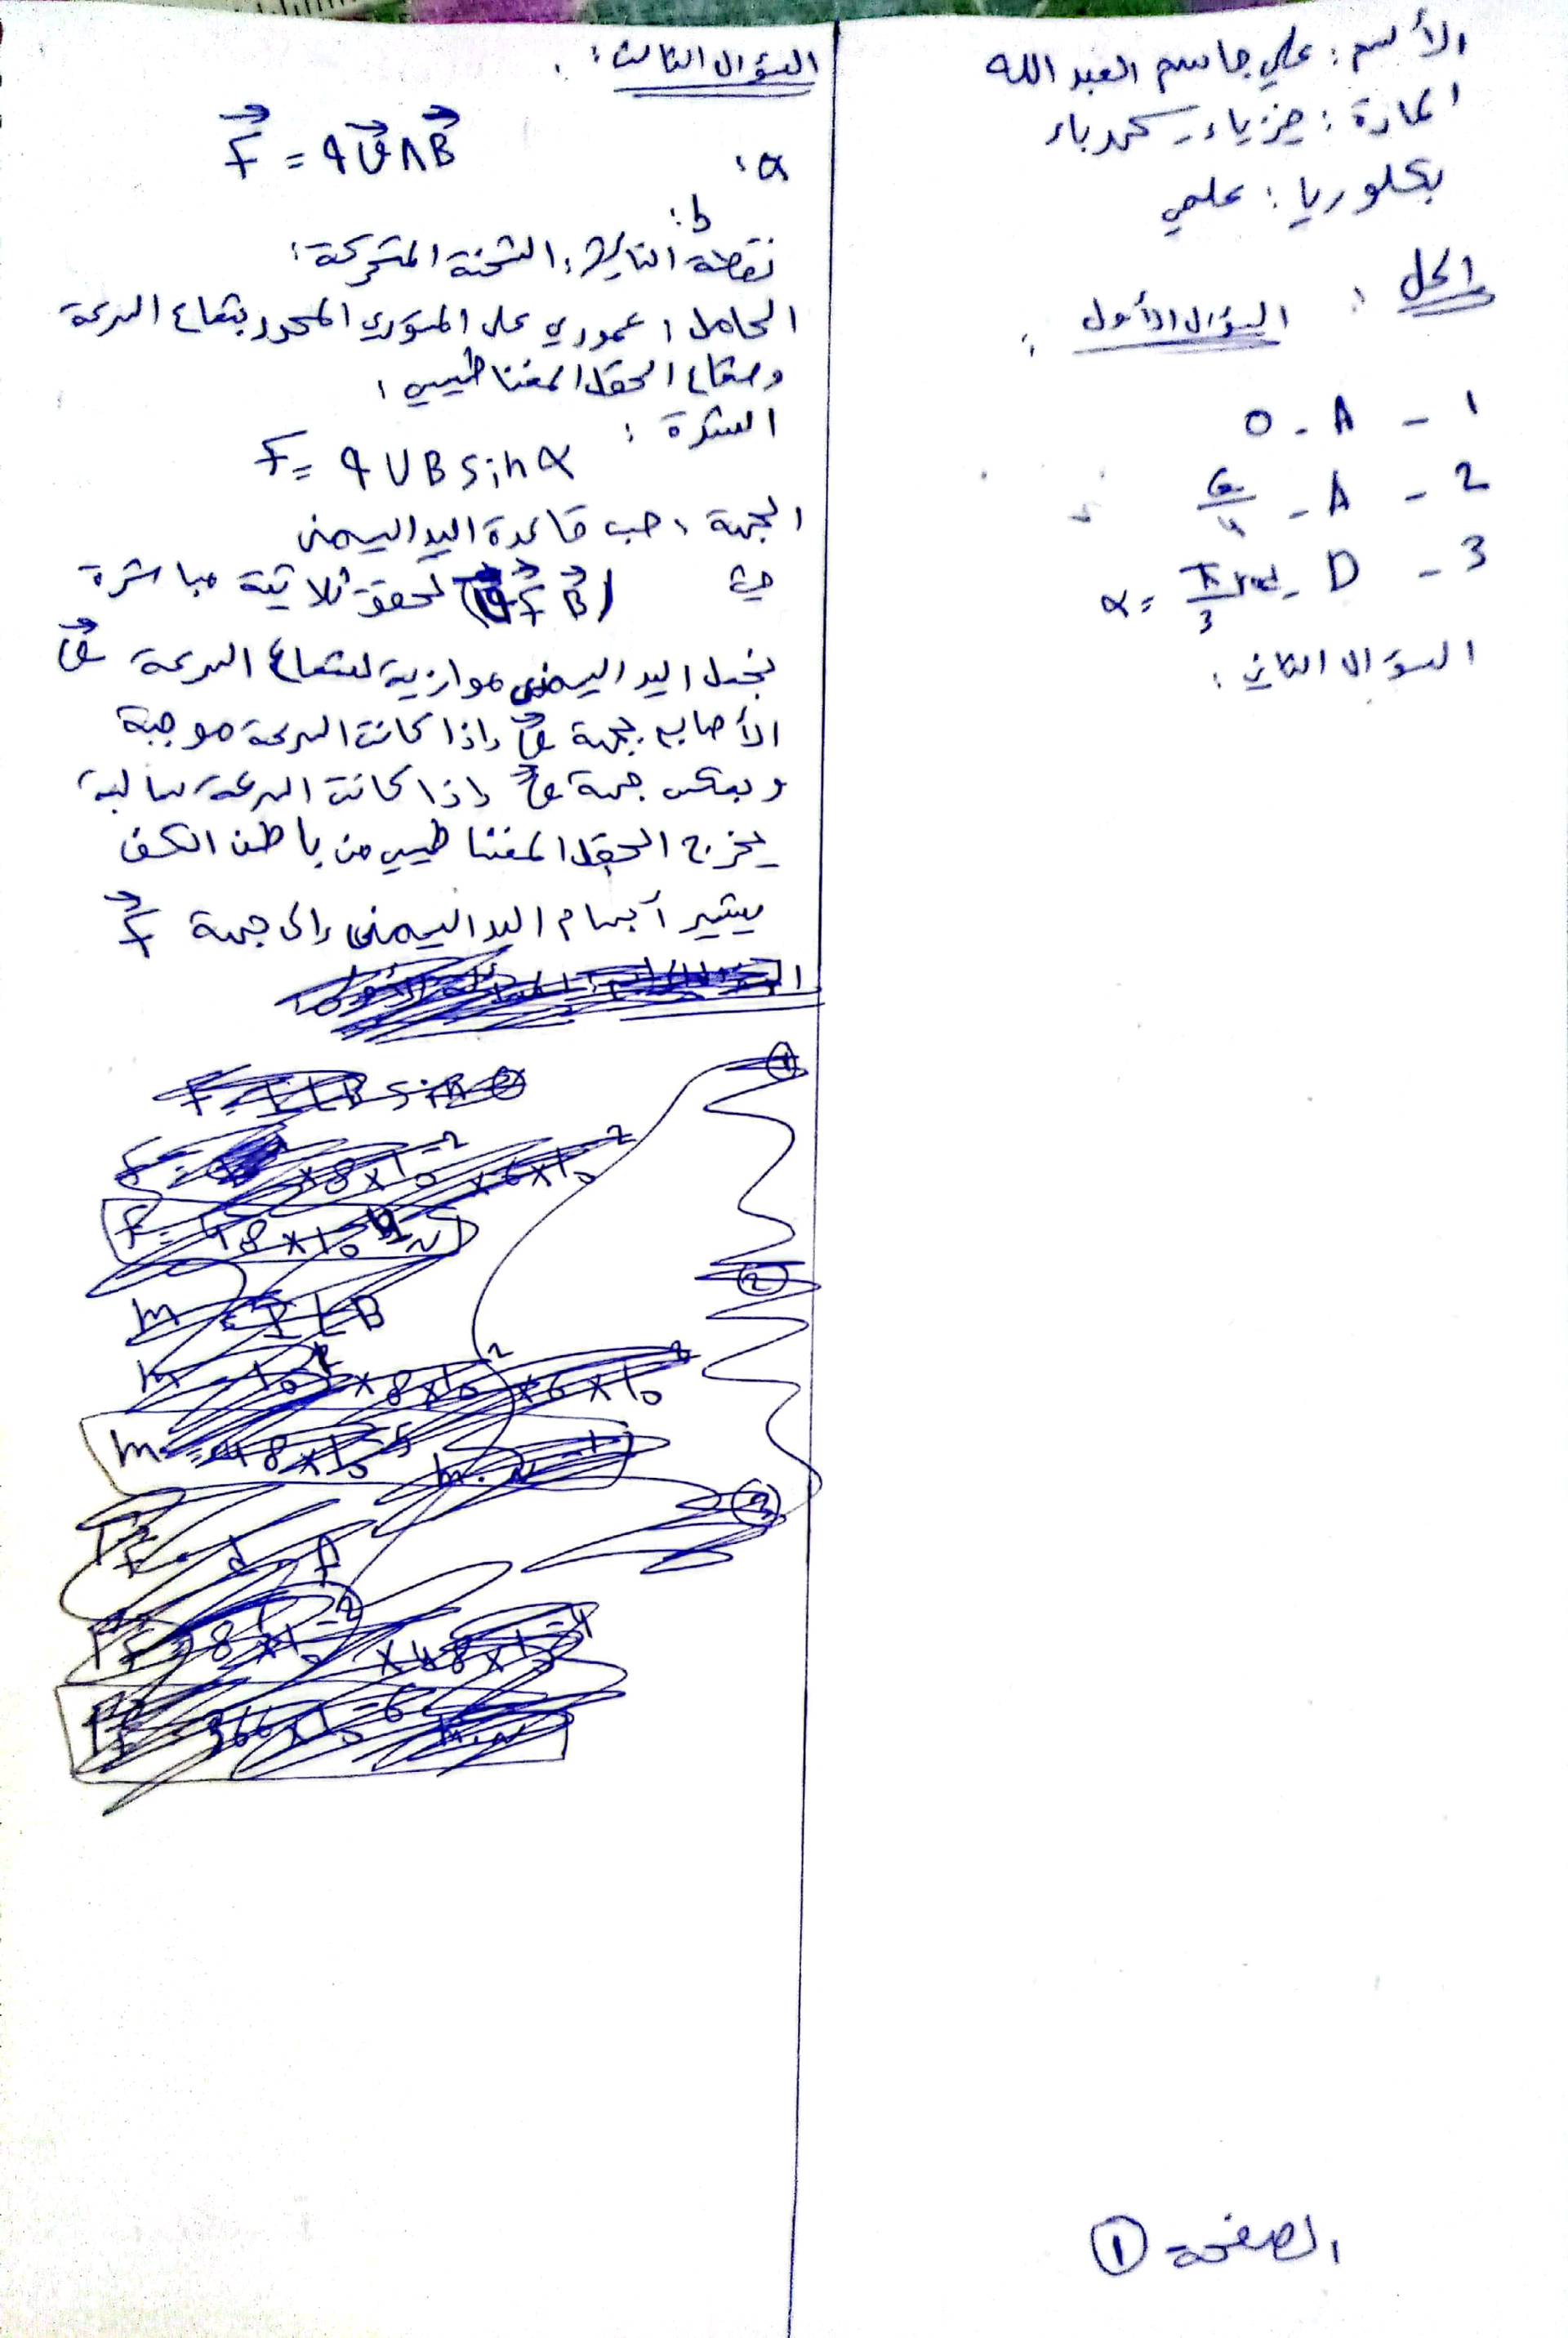 الأسم : علي جاسم العبد الله
المادة : فيزياء - كهرباء
بكلوريا : علمي
الحل :
السؤال الأول :
1 - A - 0
2 - A -
3 - D - α = π/3 rad
السؤال الثاني :
السؤال الثالث :
a: F⃗ = q v⃗ ∧ B⃗
b:
نقطة التأثير : الشحنة المتحركة :
الحامل : عمودي على المستوي المحدد بشعاع السرعة
وشعاع الحقل المغناطيسي :
الشدة :
F = q v B sin α
الجهة : حسب قاعدة اليد اليمنى
حيث ( F⃗ B⃗) تحقق ثلاثية مباشرة
نجعل اليد اليمنى موازية لشعاع السرعة v⃗
الأصابع بجهة v⃗ إذا كانت السرعة موجبة
وبعكس جهة v⃗ إذا كانت السرعة سالبة
يخرج الحقل المغناطيسي من باطن الكف
يشير آبهام اليد اليمنى إلى جهة F⃗
1
F = I L B sin θ
×8×10⁻² ×6×10⁻²
2
m = I L B
3
الصفحة ①